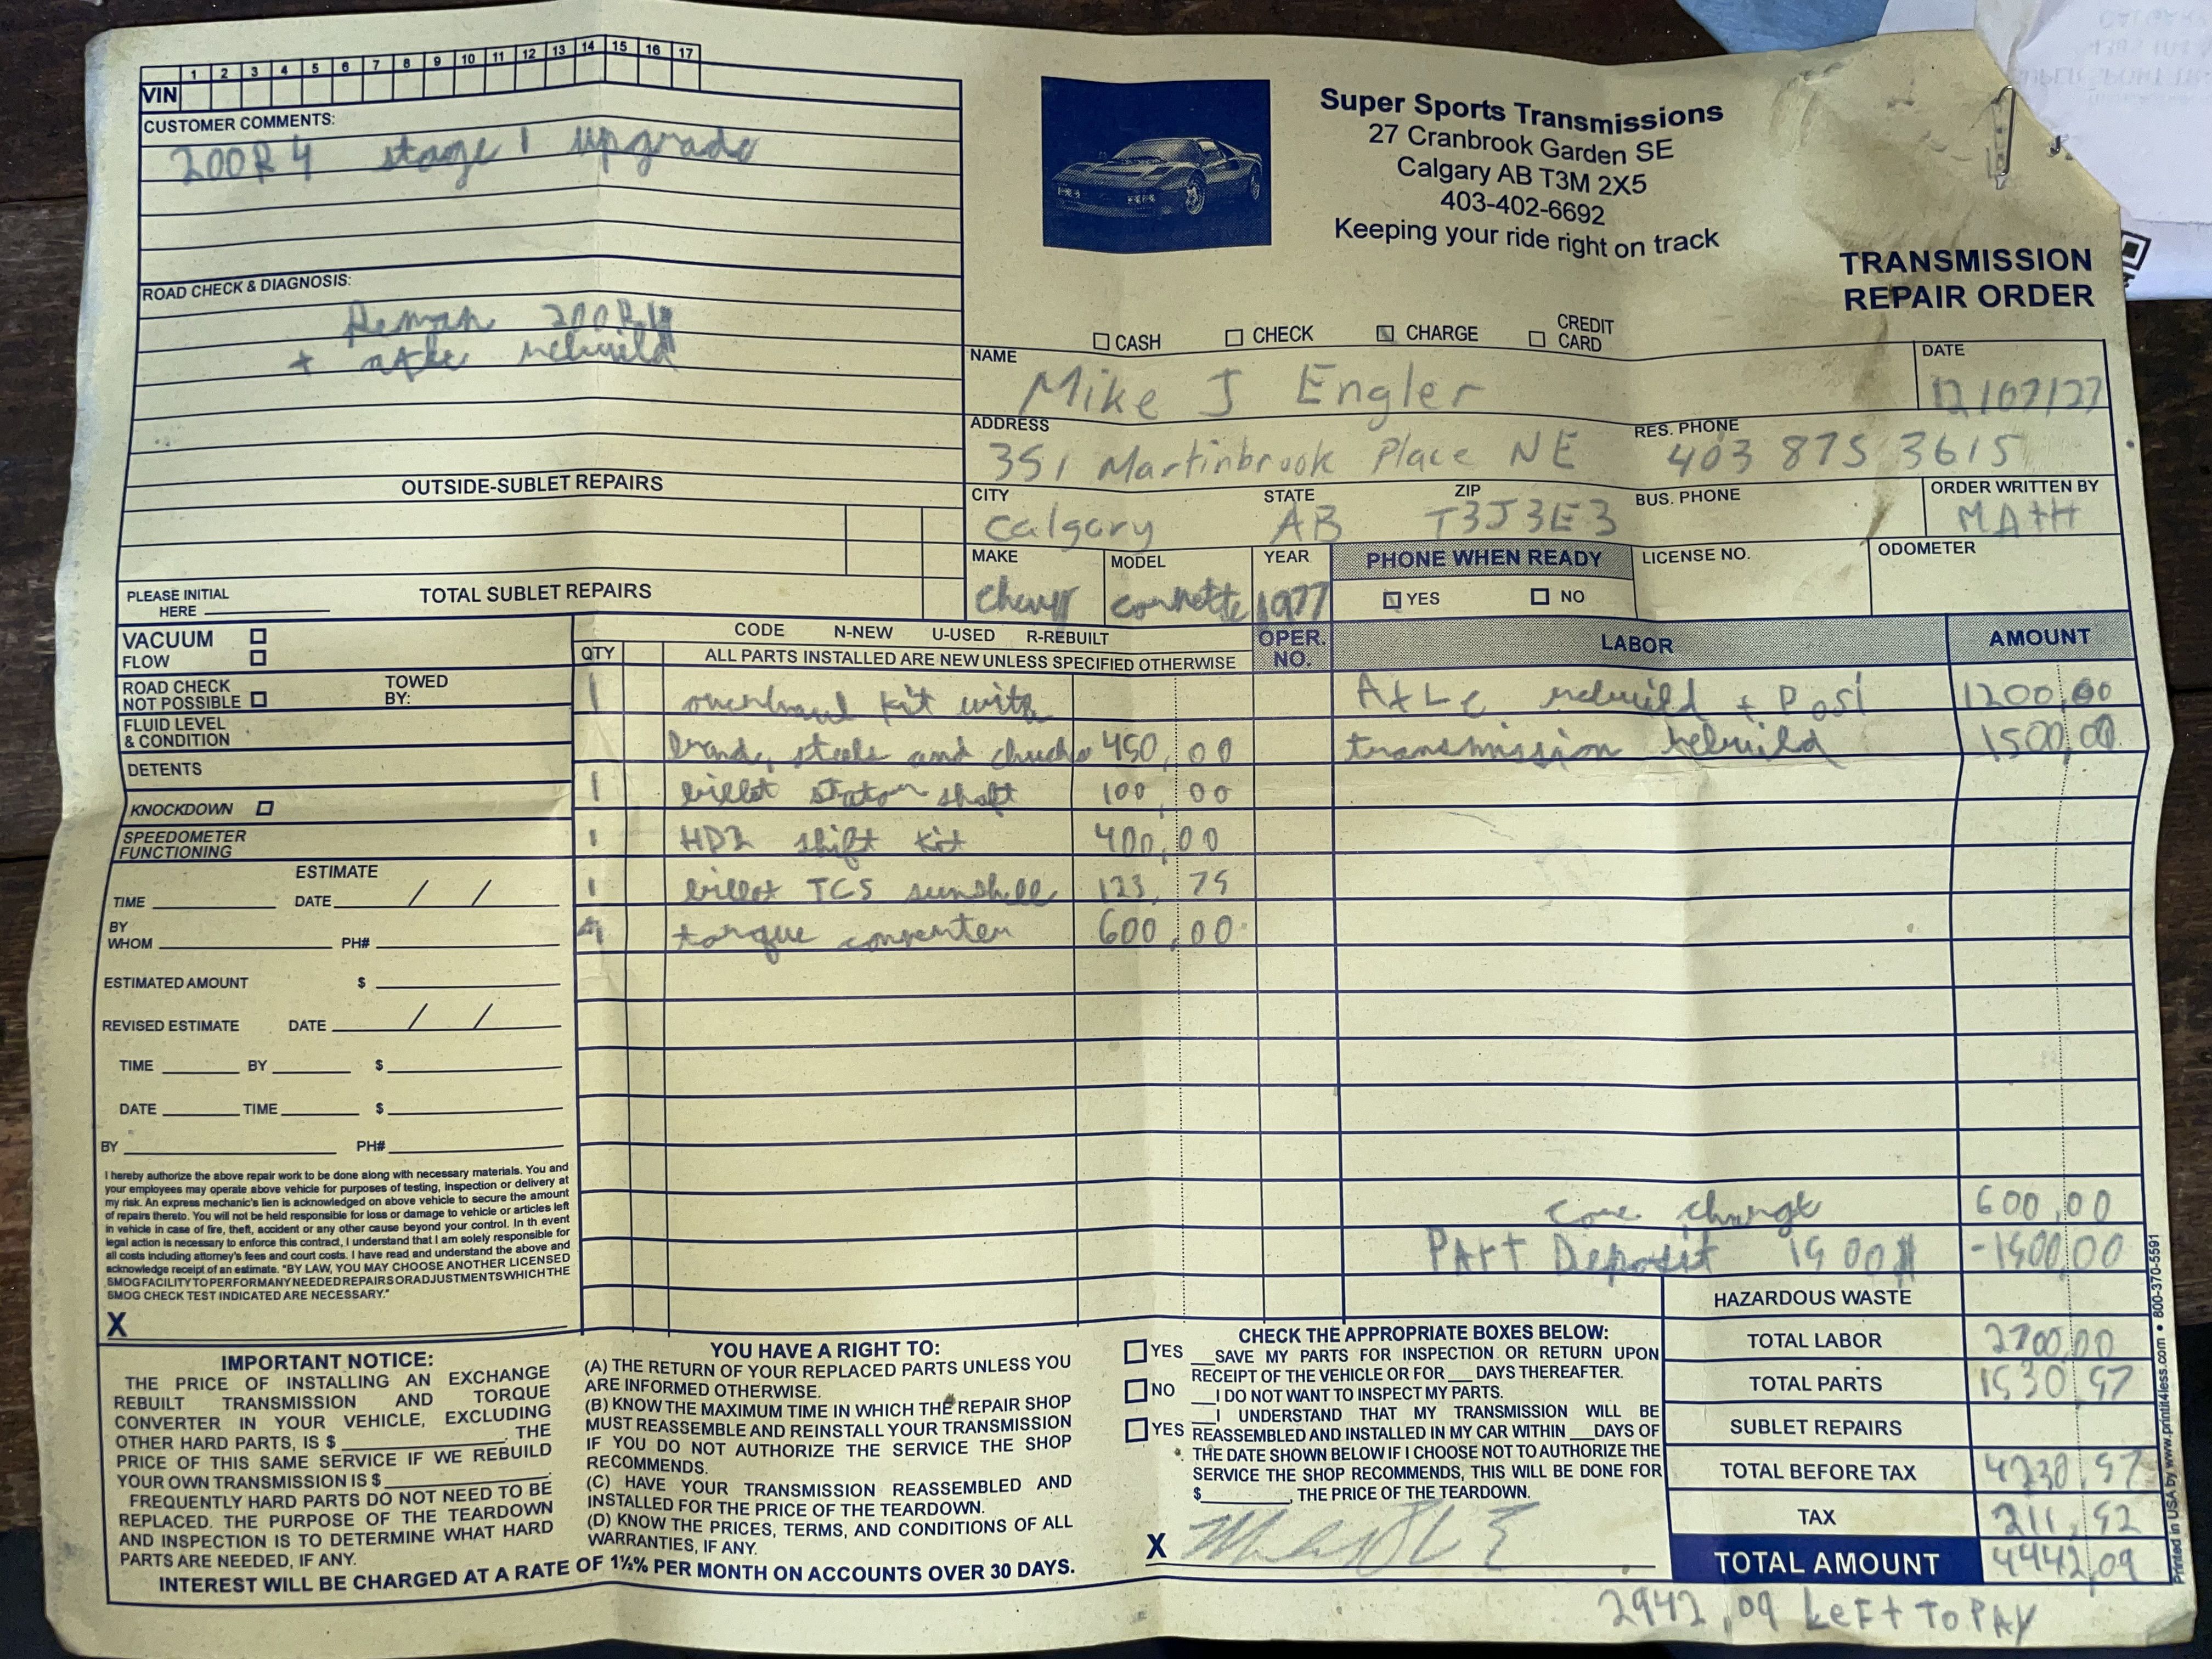 1 2 3 4 5 6 7 8 9 10 11 12 13 14 15 16 17
VIN
CUSTOMER COMMENTS:
200R4 stage 1 upgrade
ROAD CHECK & DIAGNOSIS:
Reman 200R4
+ axle rebuild
OUTSIDE-SUBLET REPAIRS
PLEASE INITIAL
HERE
TOTAL SUBLET REPAIRS
Super Sports Transmissions
27 Cranbrook Garden SE
Calgary AB T3M 2X5
403-402-6692
Keeping your ride right on track
TRANSMISSION
REPAIR ORDER
CASH CHECK CHARGE CREDIT CARD
NAME
Mike J Engler
DATE
ADDRESS
351 Martinbrook Place NE
RES. PHONE
403 875 3615
CITY STATE ZIP
Calgary AB T3J3E3
BUS. PHONE
ORDER WRITTEN BY
MAtH
MAKE MODEL YEAR
chevy corvette 1977
PHONE WHEN READY
YES NO
LICENSE NO.
ODOMETER
VACUUM
FLOW
ROAD CHECK
NOT POSSIBLE
TOWED
BY:
FLUID LEVEL
& CONDITION
DETENTS
KNOCKDOWN
SPEEDOMETER
FUNCTIONING
ESTIMATE
TIME DATE / /
BY
WHOM PH#
ESTIMATED AMOUNT $
REVISED ESTIMATE DATE / /
TIME BY $
DATE TIME $
BY PH#
I hereby authorize the above repair work to be done along with necessary materials. You and
your employees may operate above vehicle for purposes of testing, inspection or delivery at
my risk. An express mechanic's lien is acknowledged on above vehicle to secure the amount
of repairs thereto. You will not be held responsible for loss or damage to vehicle or articles left
in vehicle in case of fire, theft, accident or any other cause beyond your control. In th event
legal action is necessary to enforce this contract, I understand that I am solely responsible for
all costs including attorney's fees and court costs. I have read and understand the above and
acknowledge receipt of an estimate. "BY LAW, YOU MAY CHOOSE ANOTHER LICENSED
SMOG FACILITY TO PERFORM ANY NEEDED REPAIRS OR ADJUSTMENTS WHICH THE
SMOG CHECK TEST INDICATED ARE NECESSARY."
X
CODE N-NEW U-USED R-REBUILT
QTY ALL PARTS INSTALLED ARE NEW UNLESS SPECIFIED OTHERWISE
OPER.
NO.
LABOR
AMOUNT
1 overhaul kit with
band, steels and 450,00
1 billet stator shaft 100,00
1 HD2 shift kit 400,00
1 billet TCS sunshell 123,75
1 torque converter 600,00
AxLe rebuild + Posi 1200,00
transmission rebuild 1500,00
core charge 600,00
PArt Deposit 1500$ -1500,00
HAZARDOUS WASTE
TOTAL LABOR 2700,00
TOTAL PARTS 1530,57
SUBLET REPAIRS
TOTAL BEFORE TAX 4230,57
TAX 211,52
TOTAL AMOUNT 4442,09
2942,09 LeFt To PAY
IMPORTANT NOTICE:
THE PRICE OF INSTALLING AN EXCHANGE
REBUILT TRANSMISSION AND TORQUE
CONVERTER IN YOUR VEHICLE, EXCLUDING
OTHER HARD PARTS, IS $ . THE
PRICE OF THIS SAME SERVICE IF WE REBUILD
YOUR OWN TRANSMISSION IS $ .
FREQUENTLY HARD PARTS DO NOT NEED TO BE
REPLACED. THE PURPOSE OF THE TEARDOWN
AND INSPECTION IS TO DETERMINE WHAT HARD
PARTS ARE NEEDED, IF ANY.
YOU HAVE A RIGHT TO:
(A) THE RETURN OF YOUR REPLACED PARTS UNLESS YOU
ARE INFORMED OTHERWISE.
(B) KNOW THE MAXIMUM TIME IN WHICH THE REPAIR SHOP
MUST REASSEMBLE AND REINSTALL YOUR TRANSMISSION
IF YOU DO NOT AUTHORIZE THE SERVICE THE SHOP
RECOMMENDS.
(C) HAVE YOUR TRANSMISSION REASSEMBLED AND
INSTALLED FOR THE PRICE OF THE TEARDOWN.
(D) KNOW THE PRICES, TERMS, AND CONDITIONS OF ALL
WARRANTIES, IF ANY.
INTEREST WILL BE CHARGED AT A RATE OF 1½% PER MONTH ON ACCOUNTS OVER 30 DAYS.
CHECK THE APPROPRIATE BOXES BELOW:
YES SAVE MY PARTS FOR INSPECTION OR RETURN UPON
RECEIPT OF THE VEHICLE OR FOR DAYS THEREAFTER.
NO I DO NOT WANT TO INSPECT MY PARTS.
I UNDERSTAND THAT MY TRANSMISSION WILL BE
YES REASSEMBLED AND INSTALLED IN MY CAR WITHIN DAYS OF
THE DATE SHOWN BELOW IF I CHOOSE NOT TO AUTHORIZE THE
SERVICE THE SHOP RECOMMENDS, THIS WILL BE DONE FOR
$ , THE PRICE OF THE TEARDOWN.
X
Printed in USA by www.printit4less.com • 800-370-5591